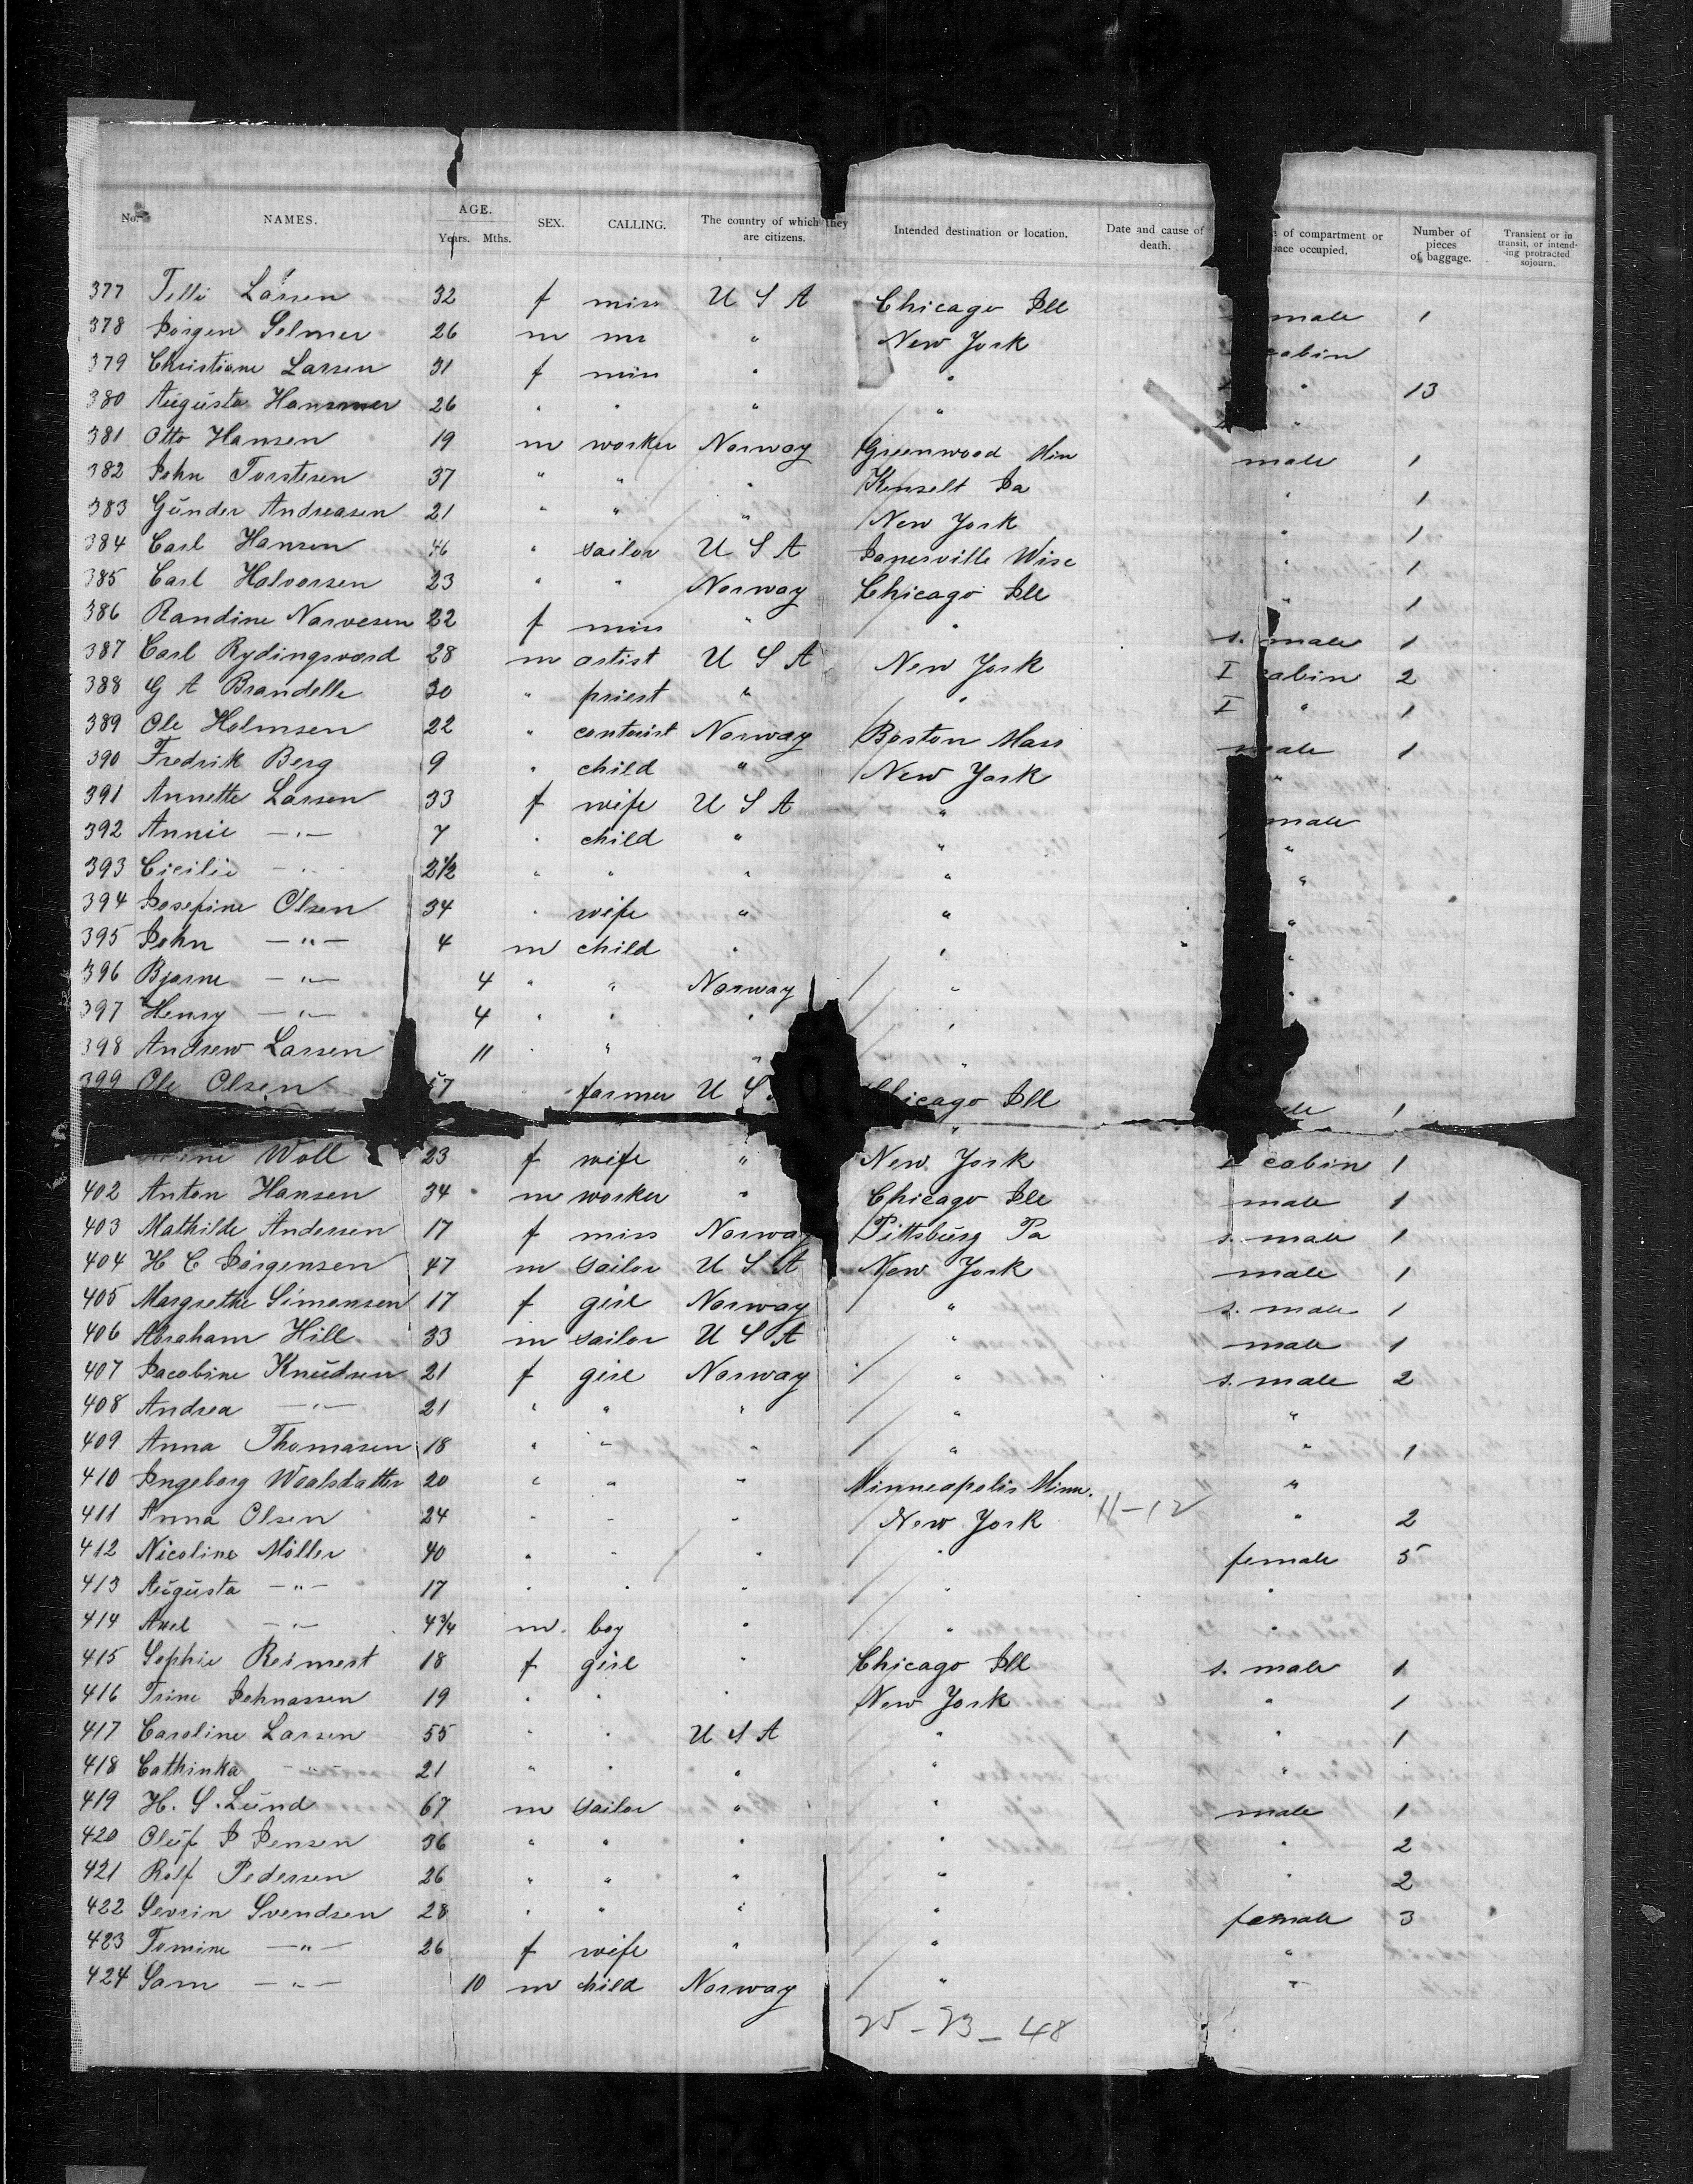 No. NAMES. AGE. Years. Mths. SEX. CALLING. The country of which they are citizens. Intended destination or location. Date and cause of death. of compartment or space occupied. Number of pieces of baggage. Transient or in transit, or intending protracted sojourn.
377 Tilli Larsen 32 f miss U S A Chicago Ill male 1
378 Jörgen Selmer 26 m mr " New York cabin
379 Christiane Larsen 31 f miss " " " 13
380 Augusta 26 " " " " "
381 Otto Hansen 19 m worker Norway Greenwood Min male 1
382 John Torstesen 37 " " " Kenselt Ia " 1
383 Gunder Andreasen 21 " " " New York " 1
384 Carl Hansen 46 " sailor U S A Janesville Wisc " 1
385 Carl Halvorsen 23 " " Norway Chicago Ill " 1
386 Randine Narvesen 22 f miss " " s. male 1
387 Carl Rydingsvard 28 m artist U S A New York I cabin 2
388 G A Brandelle 30 " priest " " I " 1
389 Ole Holmsen 22 " contorist Norway Boston Mass male 1
390 Fredrik Berg 9 " child " New York "
391 Annette Larsen 33 f wife U S A " male
392 Annie —"— 7 " child " " "
393 Cicilie —"— 2½ " " " " "
394 Josefine Olsen 34 " wife " " "
395 John —"— 4 m child " " "
396 Bjarne —"— 4 " " Norway " "
397 Henry —"— 4 " " " "
398 Andrew Larsen 11 " " " "
399 Ole Olsen 57 farmer U S Chicago Ill male 1
ine Woll 23 f wife " New York cabin 1
402 Anton Hansen 34 m worker " Chicago Ill male 1
403 Mathilde Andersen 17 f miss Norway Pittsburg Pa s. male 1
404 H C Jörgensen 47 m sailor U S A New York male 1
405 Margrethe Simonsen 17 f girl Norway " s. male 1
406 Abraham Hill 33 m sailor U S A " male 1
407 Jacobine Knudsen 21 f girl Norway " s. male 2
408 Andrea —"— 21 " " " " "
409 Anna Thomasen 18 " " " " " 1
410 Ingeborg 20 " " " Minneapolis Minn. "
411 Anna Olsen 24 " " " New York 11-12 " 2
412 Nicoline Möller 40 " " " " female 5
413 Augusta —"— 17 " " " " "
414 Axel —"— 4¾ m. boy " " "
415 Sophie Reimert 18 f girl " Chicago Ill s. male 1
416 Trine Johnassen 19 " " " New York " 1
417 Caroline Larsen 55 " " U S A " " 1
418 Cathinka —"— 21 " " " " "
419 H. S. Lund 67 m sailor " " male 1
420 Oluf J Jensen 36 " " " " " 2
421 Rolf Pedersen 26 " " " " " 2
422 Sevrin Svendsen 28 " " " " female 3
423 Tomine —"— 26 f wife " " "
424 Sam —"— 10 m child Norway " "
25 - 23 - 48